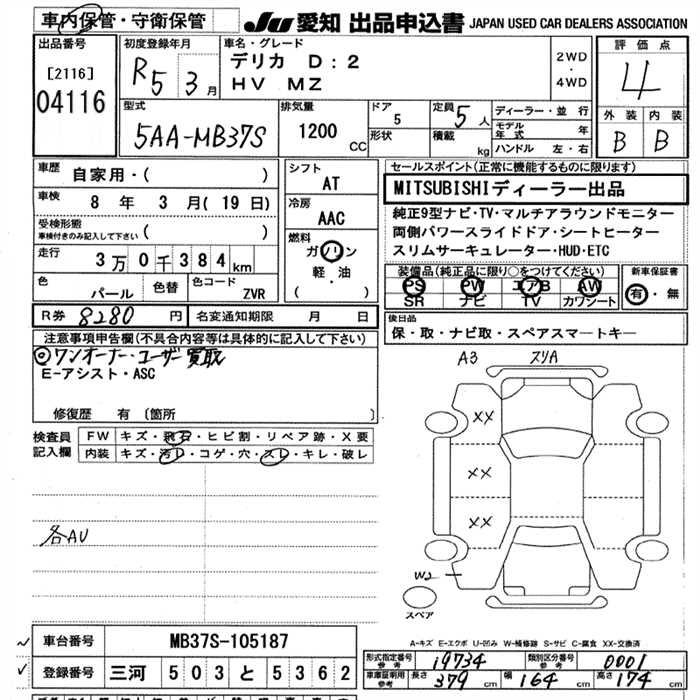 車内保管・守衛保管
JU 愛知 出品申込書 JAPAN USED CAR DEALERS ASSOCIATION
出品番号
[2116]
04116
初度登録年月
R5 3 月
車名・グレード
デリカ D:2
HV MZ
2WD
・
4WD
評価点
4
外装 内装
B B
型式
5AA-MB37S
排気量
1200 CC
ドア
5
形状
定員
5 人
積載
kg
ディーラー・並行
モデル年式 年
ハンドル 左・右
車歴
自家用・( )
車検
8 年 3 月(19 日)
受検形態
車検付きのみ記入して下さい ( )
走行
3万0千384km
色
パール
色替
色コード
ZVR
シフト
AT
冷房
AAC
燃料
ガソリン
軽・油
( )
セールスポイント(正常に機能するものに限ります)
MITSUBISHIディーラー出品
純正9型ナビ・TV・マルチアラウンドモニター
両側パワースライドドア・シートヒーター
スリムサーキュレーター・HUD・ETC
装備品(純正品に限り○をつけてください)
PS PW エアB AW
SR ナビ TV カワシート
新車保証書
有・無
R券 8280 円
名変通知期限 月 日
後日品
保・取・ナビ取・スペアスマートキー
注意事項申告欄(不具合内容等は具体的に記入して下さい)
◎ワンオーナー・ユーザー買取
E-アシスト・ASC
修復歴 有〔箇所 〕
検査員記入欄
FW キズ・飛石・ヒビ割・リペア跡・X要
内装 キズ・汚レ・コゲ・穴・スレ・キレ・破レ
各AU
A3 スリA
XX
XX
XX
W2
スペア
A-キズ E-エクボ U-凹み W-補修跡 S-サビ C-腐食 XX-交換済
車台番号 MB37S-105187
登録番号 三河 503 と 5362
形式指定番号
参考
19734
類別区分番号
参考
0001
車庫証明用
参考
長さ 379 cm 幅 164 cm 高さ 174 cm